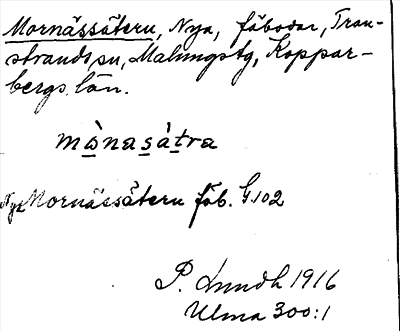 Mornässätern, Nya, fäbodar, Tran-
strands sn, Malungs tg, Koppar-
bergs län.
mȧnasȧ̀tra
Nya Mornässätern fäb. G.102
P. Lundh 1916
Ulma 300:1